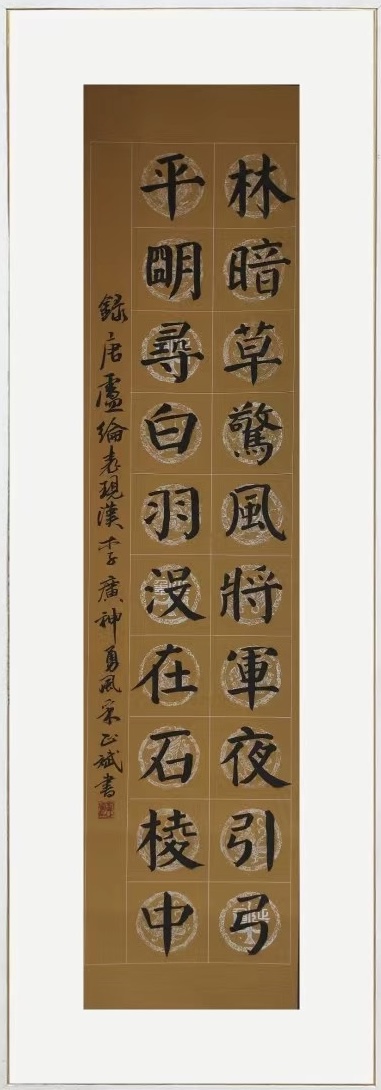 林暗草驚風將軍夜引弓
平明尋白羽沒在石棱中
錄唐盧綸表現漢李廣神勇風采正斌書